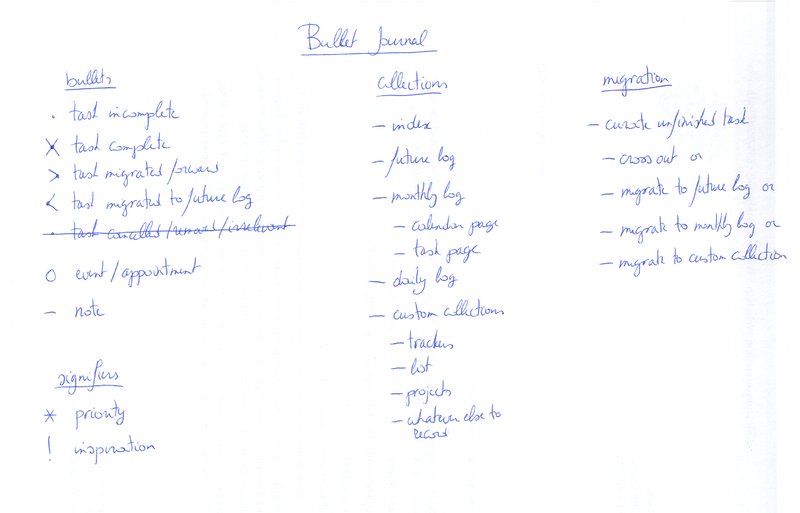 Bullet Journal
bullets
· task incomplete
X task complete
> task migrated forward
< task migrated to future log
· task cancelled/ /irrelevant
O event/appointment
— note
signifiers
* priority
! inspiration
collections
— index
— future log
— monthly log
— calendar page
— task page
— daily log
— custom collections
— trackers
— list
— projects
— whatever else to
record
migration
— curate unfinished task
— cross out or
— migrate to future log or
— migrate to monthly log or
— migrate to custom collection